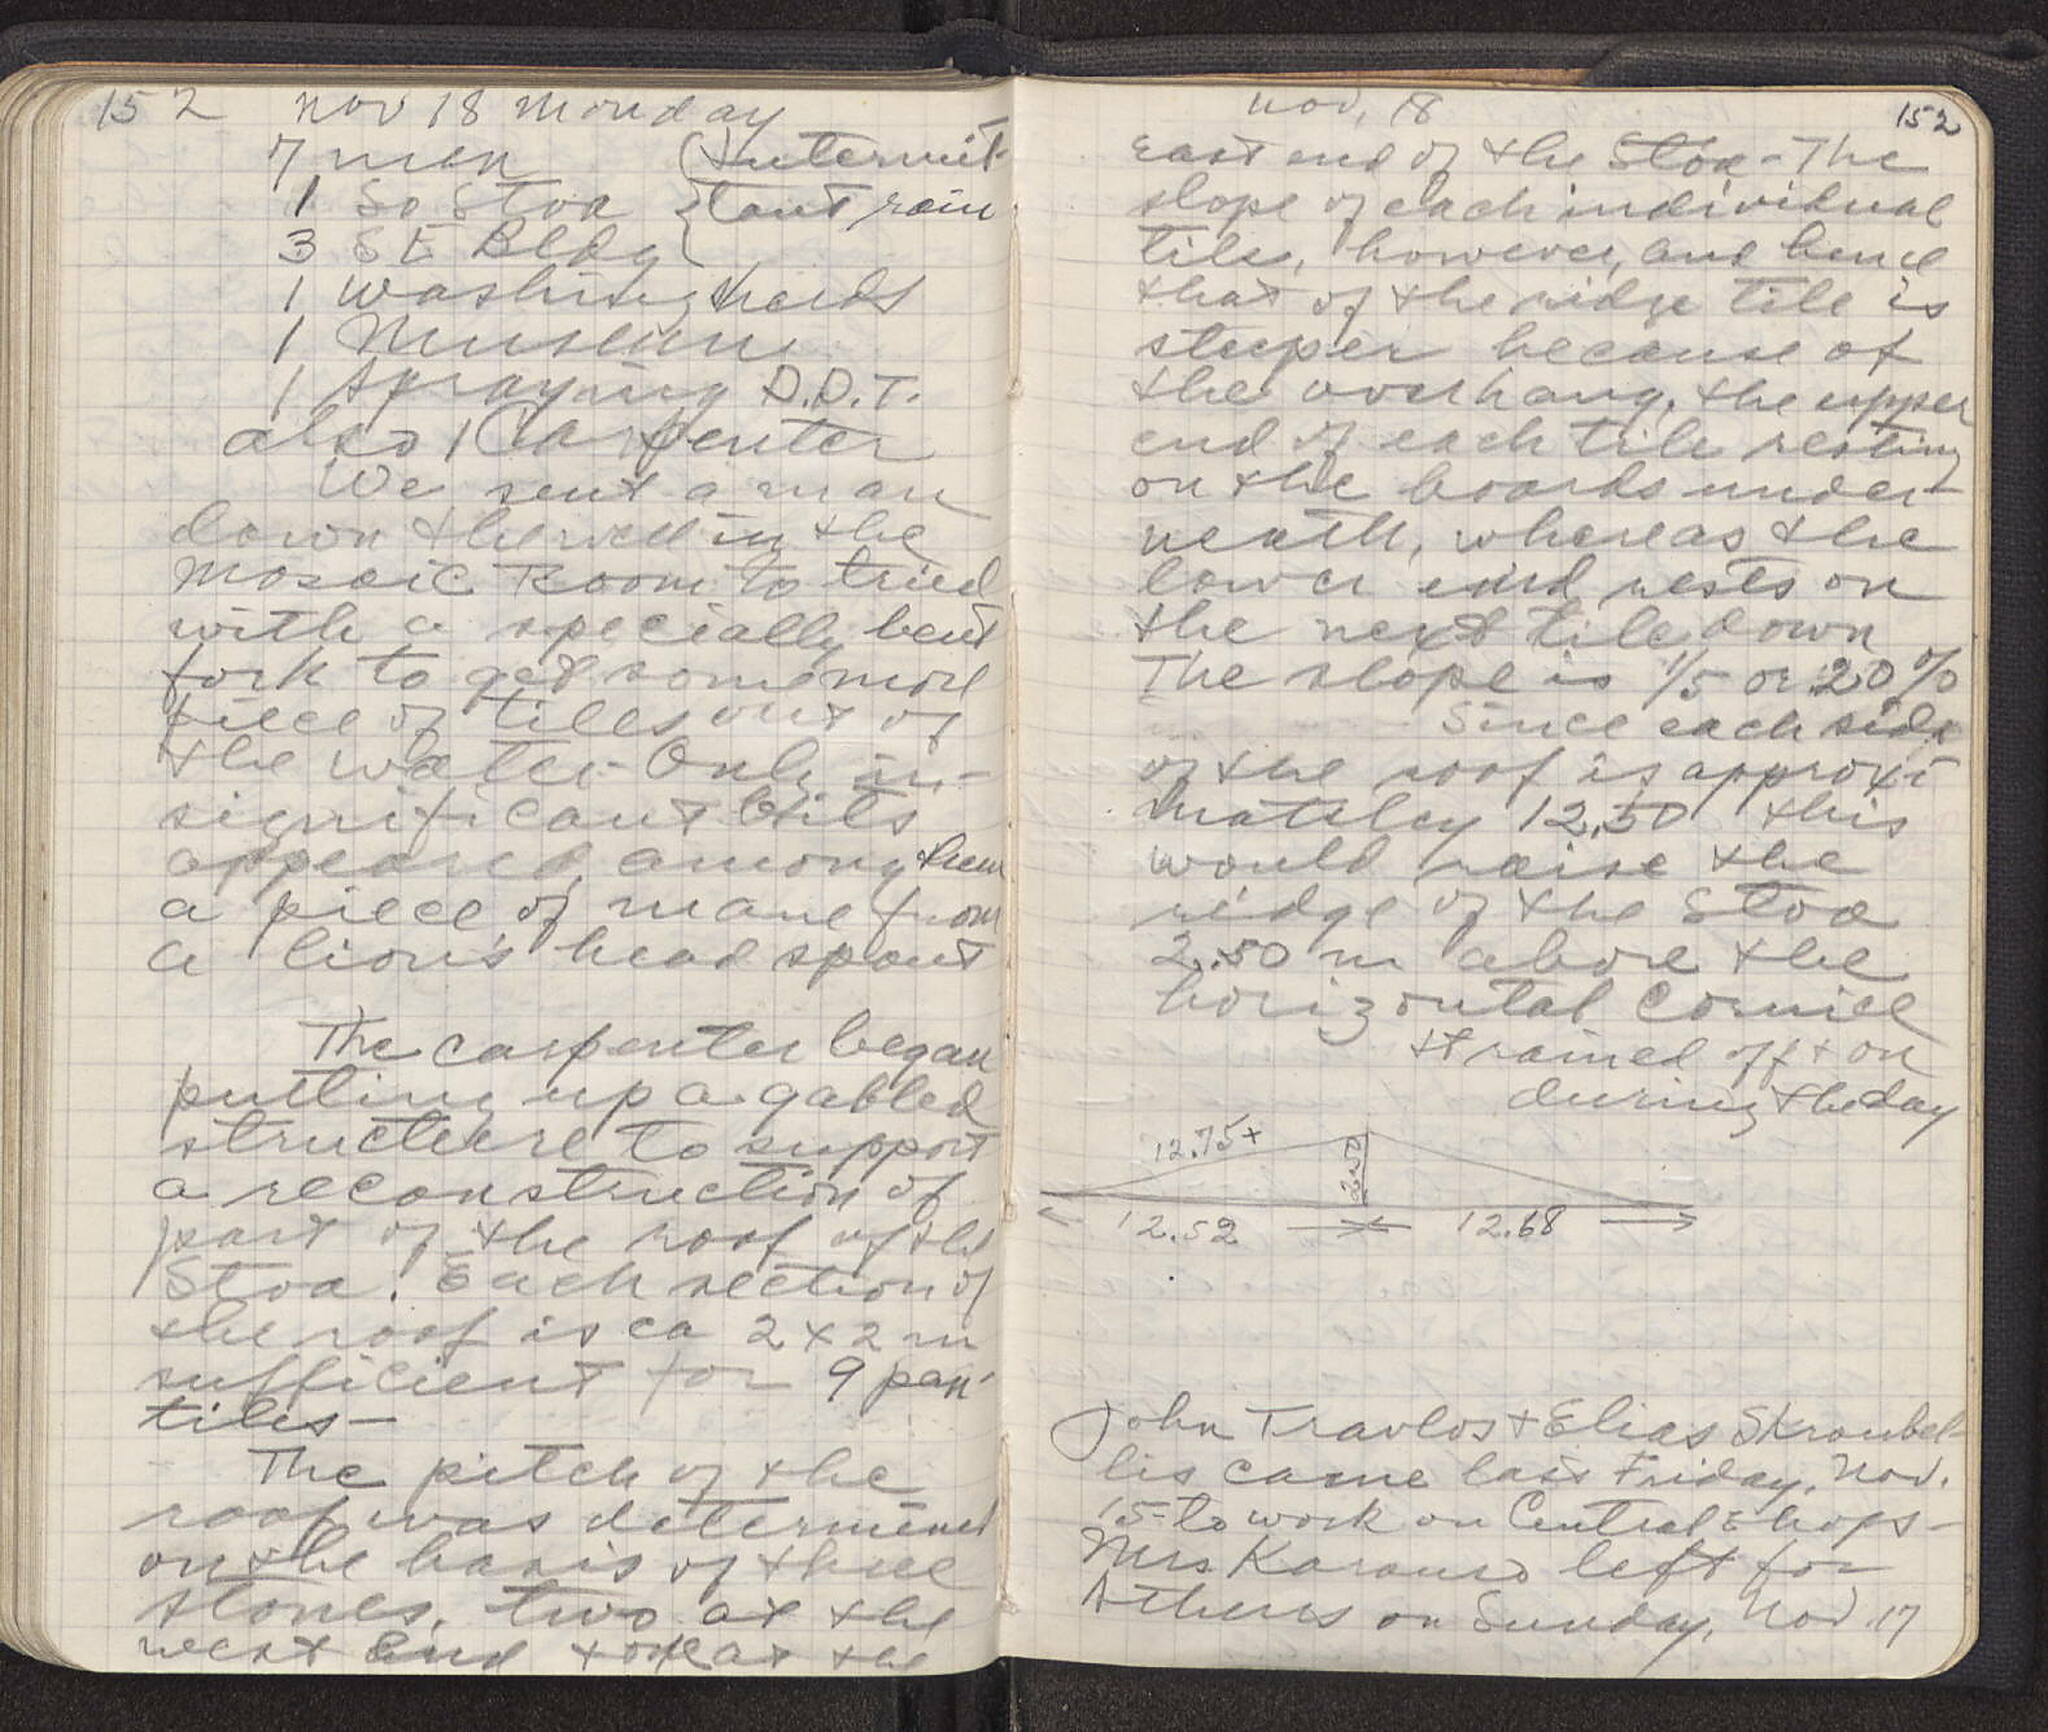 152 Nov 18 Monday
7 men (Intermit-
1 So Stoa tant rain
3 SE Bldg
1 washing sherds
1 Museum
1 spraying D.D.T.
also 1 Carpenter
We sent a man
down the well in the
Mosaic Room to tried
with a specially bent
fork to get some more
piece of tiles out of
the water. Only in-
significant bits
appeared, among them
a piece of mane from
a lion's head spout
The carpenter began
putting up a gabled
structure to support
a reconstruction of
part of the roof of the
Stoa. Each section of
the roof is ca 2 x 2 m
sufficient for 9 pan-
tiles —
The pitch of the
roof was determined
on the basis of three
stones, two at the
west end + one at the
Nov, 18 152
east end of the Stoa - The
slope of each individual
tile, however, and hence
that of the ridge tile is
steeper because of
the overhang, the upper
end of each tile resting
on the boards under-
neath, whereas the
lower end rests on
the next tile down
The slope is 1/5 or 20%
Since each side
of the roof is approxi
mately 12.50 this
would raise the
ridge of the Stoa
2.50 m above the
horizontal cornice
It rained off + on
during the day
12.75+ 250
12.52 12.68
John Travlos + Elias Skroubel-
lis came last Friday, Nov.
15 to work on Central Shops —
Mrs left for
Athens on Sunday, Nov 17